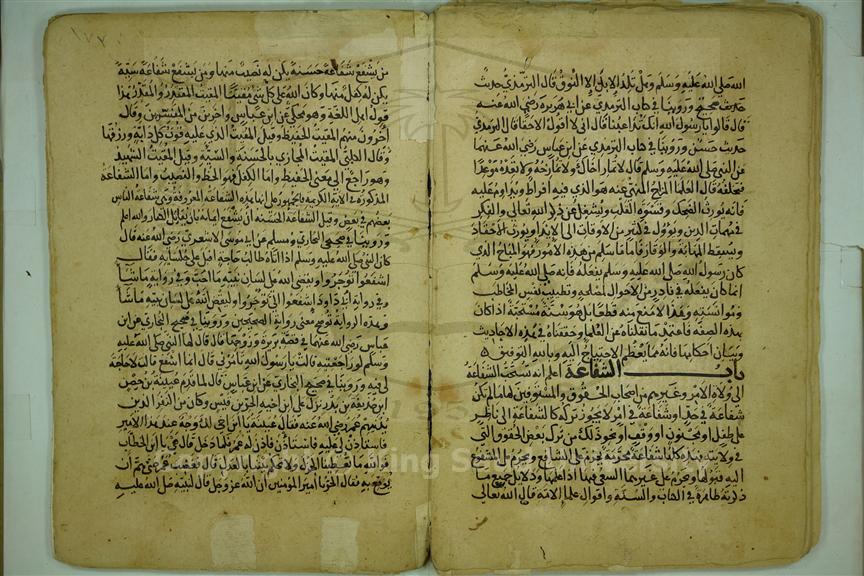 الله صلى الله عليه وسلم وهل تلد الإبل إلا النوق قال الترمذي حديث
حديث صحيح وروينا في كتاب الترمذي عن أبي هريرة رضي الله عنه
قال قالوا يا رسول الله إنك تداعبنا قال إني لا أقول إلا حقا قال الترمذي
حديث حسن وروينا في كتاب الترمذي عن ابن عباس رضي الله عنهما
عن النبي صلى الله عليه وسلم قال لا تمار أخاك ولا تمازحه ولا تعده موعدا
فتخلفه قال العلما المزاح المنهي عنه هو الذي فيه افراط ويداوم عليه
فانه يورث الضحك وقسوة القلب ويشغل عن ذكر الله تعالى والفكر
في مهمات الدين ويؤول في كثير من الاوقات الى الايذا ويورث الاحقاد
ويسقط المهابة والوقار فاما ما سلم من هذه الامور فهو المباح الذي
كان رسول الله صلى الله عليه وسلم يفعله فانه صلى الله عليه وسلم
انما كان يفعله في نادر من الاحوال لمصلحة وتطييب نفس المخاطب
ومؤانسته وهذا لا منع منه قطعا بل هو سنة مستحبة اذا كان
بهذه الصفة فاعتمد ما نقلناه عن العلما وحققناه في هذه الاحاديث
وبيان احكامها فانه مما يعظم الاحتياج اليه وبالله التوفيق
باب الشفاعة اعلم انه تستحب الشفاعة
الى ولاة الامر وغيرهم من اصحاب الحقوق والمستوفين لها ما لم تكن
شفاعة في حد او شفاعة في امر لا يجوز تركه كالشفاعة الى ناظر
على طفل او مجنون او وقف او نحو ذلك في ترك بعض الحقوق التي
في ولايته فهذه كلها شفاعة محرمة تحرم على الشافع ويحرم على المشفوع
اليه قبولها ويحرم على غيرهما السعي فيها اذا علمها ودلائل جميع ما
ذكرته ظاهرة في الكتاب والسنة واقوال علما الامة قال الله تعالى
من يشفع شفاعة حسنة يكن له نصيب منها ومن يشفع شفاعة سيئة
يكن له كفل منها وكان الله على كل شيء مقيتا المقيت المقتدر والمقدر هذا
قول اهل اللغة وهو محكي عن ابن عباس واخرين من المفسرين وقال
اخرون منهم المقيت الحفيظ وقيل المقيت الذي عليه قوت كل دابة ورزقها
وقال الكلبي المقيت المجازي بالحسنة والسيئة وقيل المقيت الشهيد
وهو راجع الى معنى الحفيظ واما الكفل فهو الحظ والنصيب واما الشفاعة
المذكورة في الاية الكريمة فالجمهور على انها هذه الشفاعة المعروفة وهي شفاعة الناس
بعضهم في بعض وقيل الشفاعة الحسنة ان يشفع ايمانه بان يقاتل الكفار والله اعلم
وروينا في صحيحي البخاري ومسلم عن ابي موسى الاشعري رضي الله عنه قال
كان النبي صلى الله عليه وسلم اذا اتاه طالب حاجة اقبل على جلسائه فقال
اشفعوا تؤجروا ويقضي الله على لسان نبيه ما احب وفي رواية ما شا
وفي رواية ابي داود اشفعوا الي لتؤجروا وليقض الله على لسان نبيه ما شا
وهذه الرواية توضح معنى رواية الصحيحين وروينا في صحيح البخاري عن ابن
عباس رضي الله عنهما في قصة بريرة وزوجها قال قال لها النبي صلى الله عليه
وسلم لو راجعتيه قالت يا رسول الله تأمرني قال انما اشفع قالت لا حاجة
لي فيه وروينا في صحيح البخاري عن ابن عباس قال لما قدم عيينة بن حصن
ابن حذيفة بن بدر نزل على ابن اخيه الحر بن قيس وكان من النفر الذين
يدنيهم عمر رضي الله عنه فقال عيينة يا ابن اخي لك وجه عند هذا الامير
فاستأذن لي عليه فاستأذن فاذن له عمر فلما دخل قال هي يا ابن الخطاب
فوالله ما تعطينا الجزل ولا تحكم بيننا بالعدل فغضب عمر حتى هم ان
يوقع به فقال الحر يا امير المؤمنين ان الله عز وجل قال لنبيه صلى الله عليه